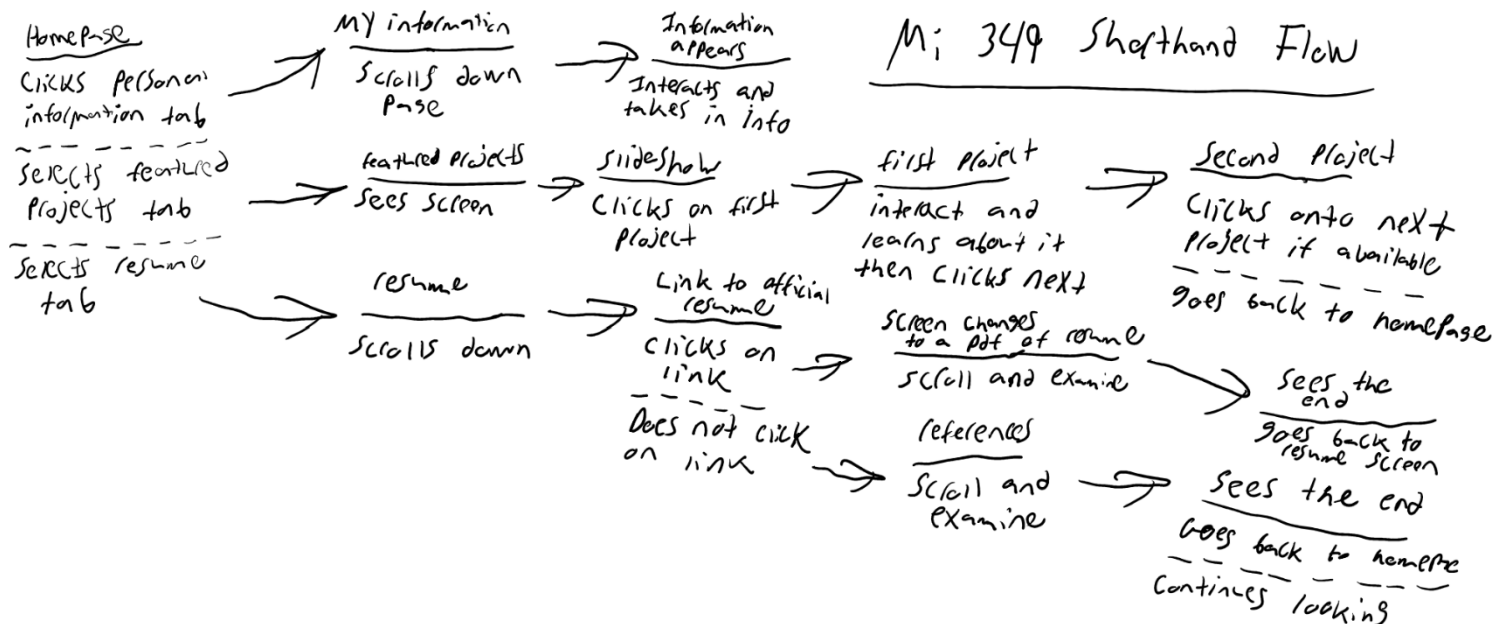 Mi 349 Shorthand Flow
Homepage
Clicks personal
information tab
selects featured
projects tab
selects resume
tab
My information
scrolls down
page
Information
appears
Interacts and
takes in info
featured projects
sees screen
slideshow
clicks on first
project
first project
interact and
learns about it
then clicks next
second project
clicks onto next
project if available
goes back to homepage
resume
scrolls down
Link to official
resume
clicks on
link
Does not click
on link
screen changes
to a pdf of resume
scroll and examine
sees the
end
goes back to
resume screen
references
scroll and
examine
sees the end
Goes back to homepge
Continues looking